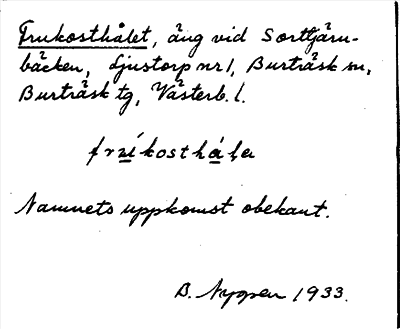 Frukosthålet, äng vid Sorttjärn-
bäcken, Ljustorp nr 1, Burträsk sn,
Burträsk tg, Västerb. l.
frukosthåla
Namnets uppkomst obekant.
B. Nygren 1933.